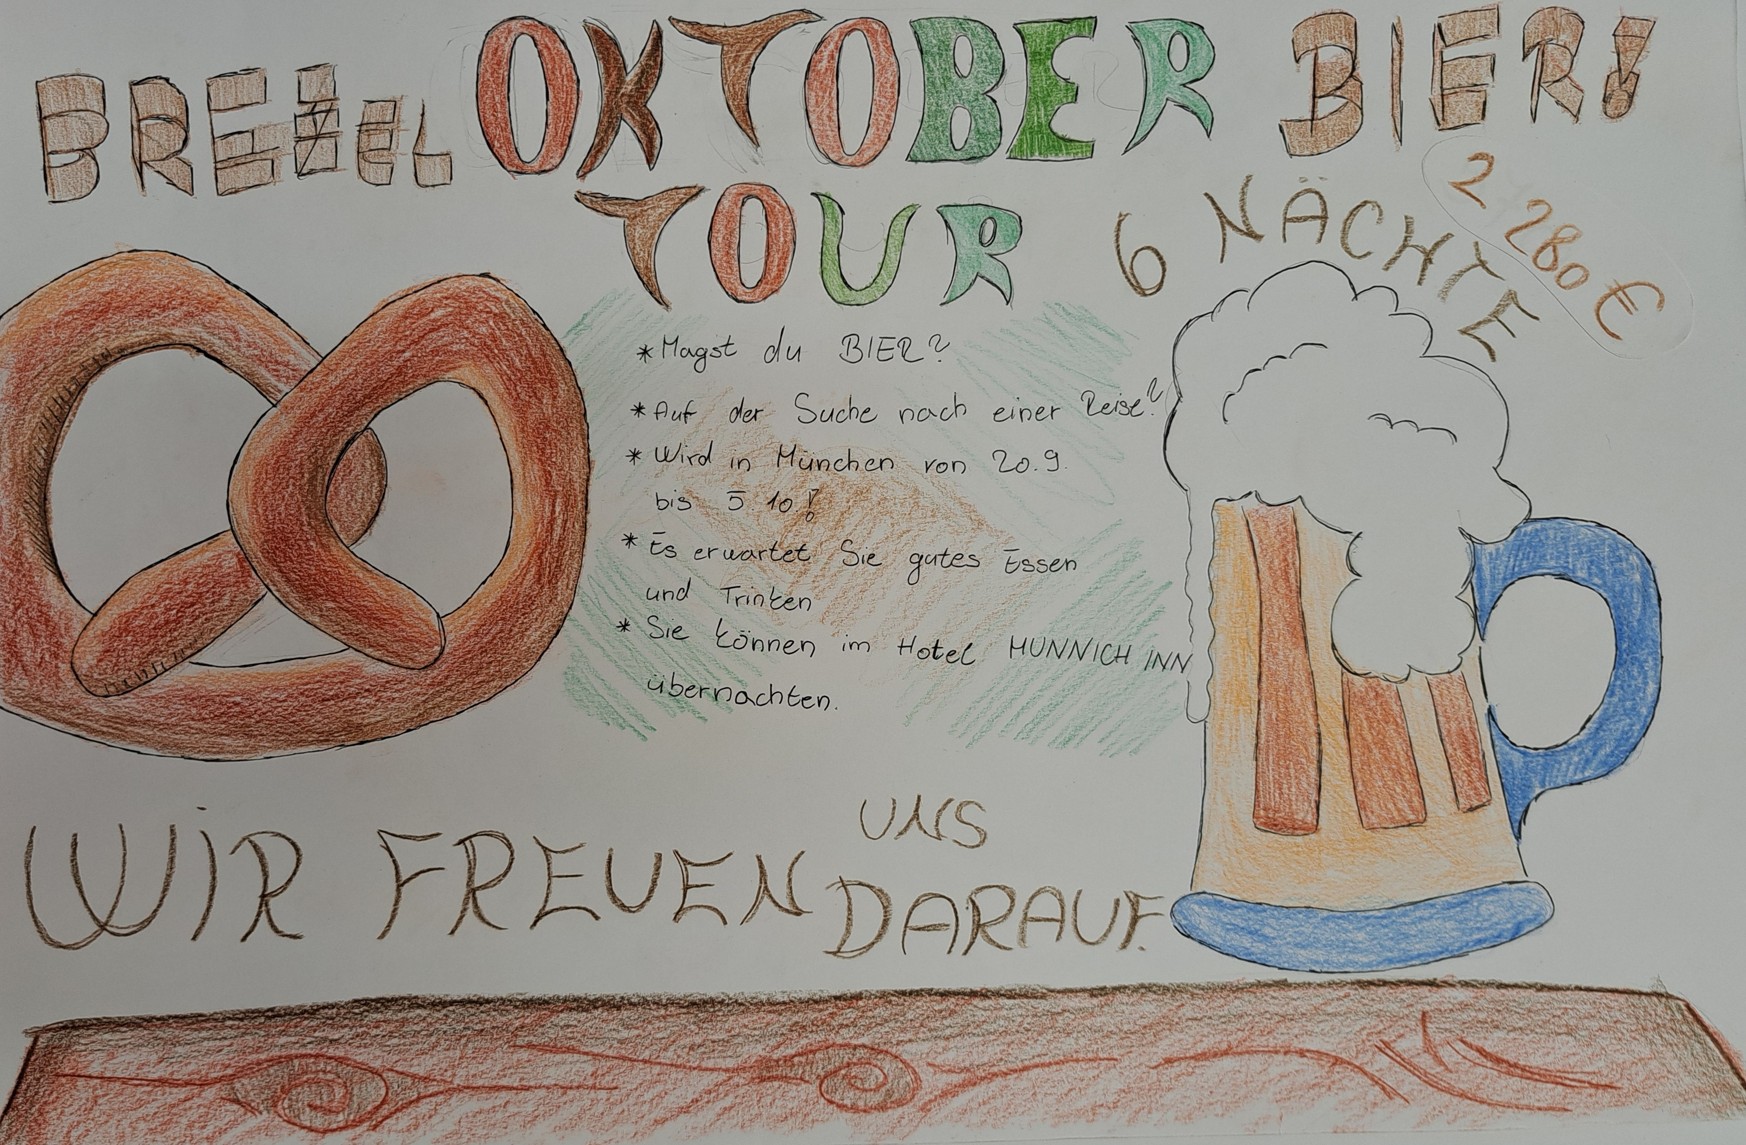 BREZEL OKTOBER BIER!
TOUR
6 NÄCHTE
2 280 €
* Magst du BIER?
* Auf der Suche nach einer Reise?
* Wird in München von 20.9.
bis 5 10!
* Es erwartet Sie gutes Essen
und Trinken
* Sie können im Hotel MUNNICH INN
übernachten.
WIR FREUEN UNS
DARAUF.